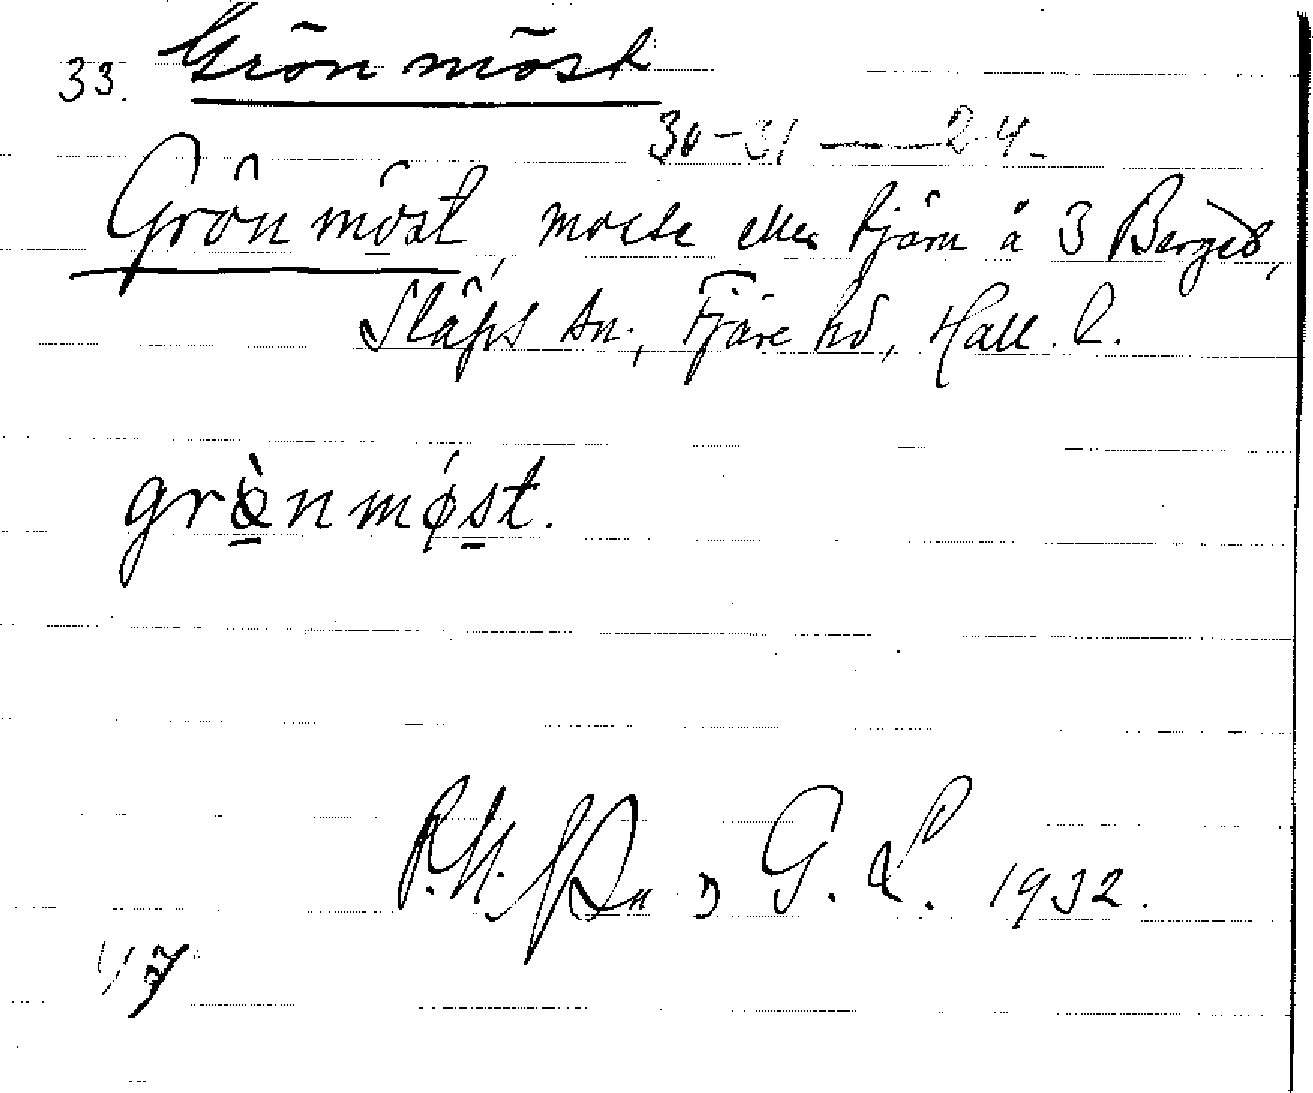 33. Grönmöst
30-31 — 24.
Grönmöst, mosse eller tjärn å 3 Berged,
Släps sn., Fjäre hd, Hall. l.
grònmǿst.
G. L. 1932.